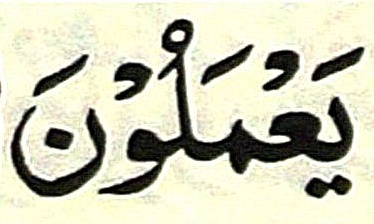 يَعْمَلُوْنَ